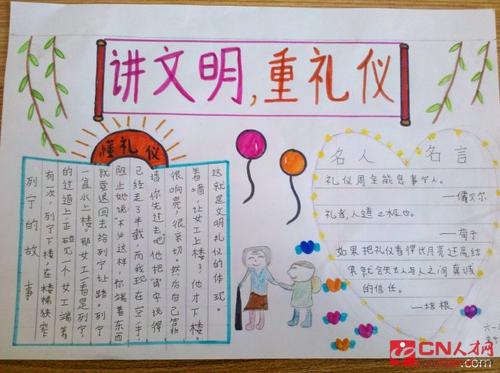 讲文明,重礼仪
懂礼仪
列宁的故事
有次,列宁下楼,在楼梯狭窄
的过道上,正碰见一个女工端着
一盆水上楼。那女工一看是列宁
就要退回去给列宁让路。列宁
阻止她说:"不必这样,你端着东西
已经走了半截,而我现在空手,
请你先过去吧!"他把"请"字说得
很响亮,很亲切。然后自己紧
靠着墙,让女工上楼了,他才下楼。
这就是文明礼仪的体现。
名人 名言
礼仪周全能息事宁人。
——儒贝尔
礼者,人道之极也。
——荀子
如果把礼仪看得比月亮还高结
果就会失去人与人之间真诚
的信任。
——培根
六一
CN人才网